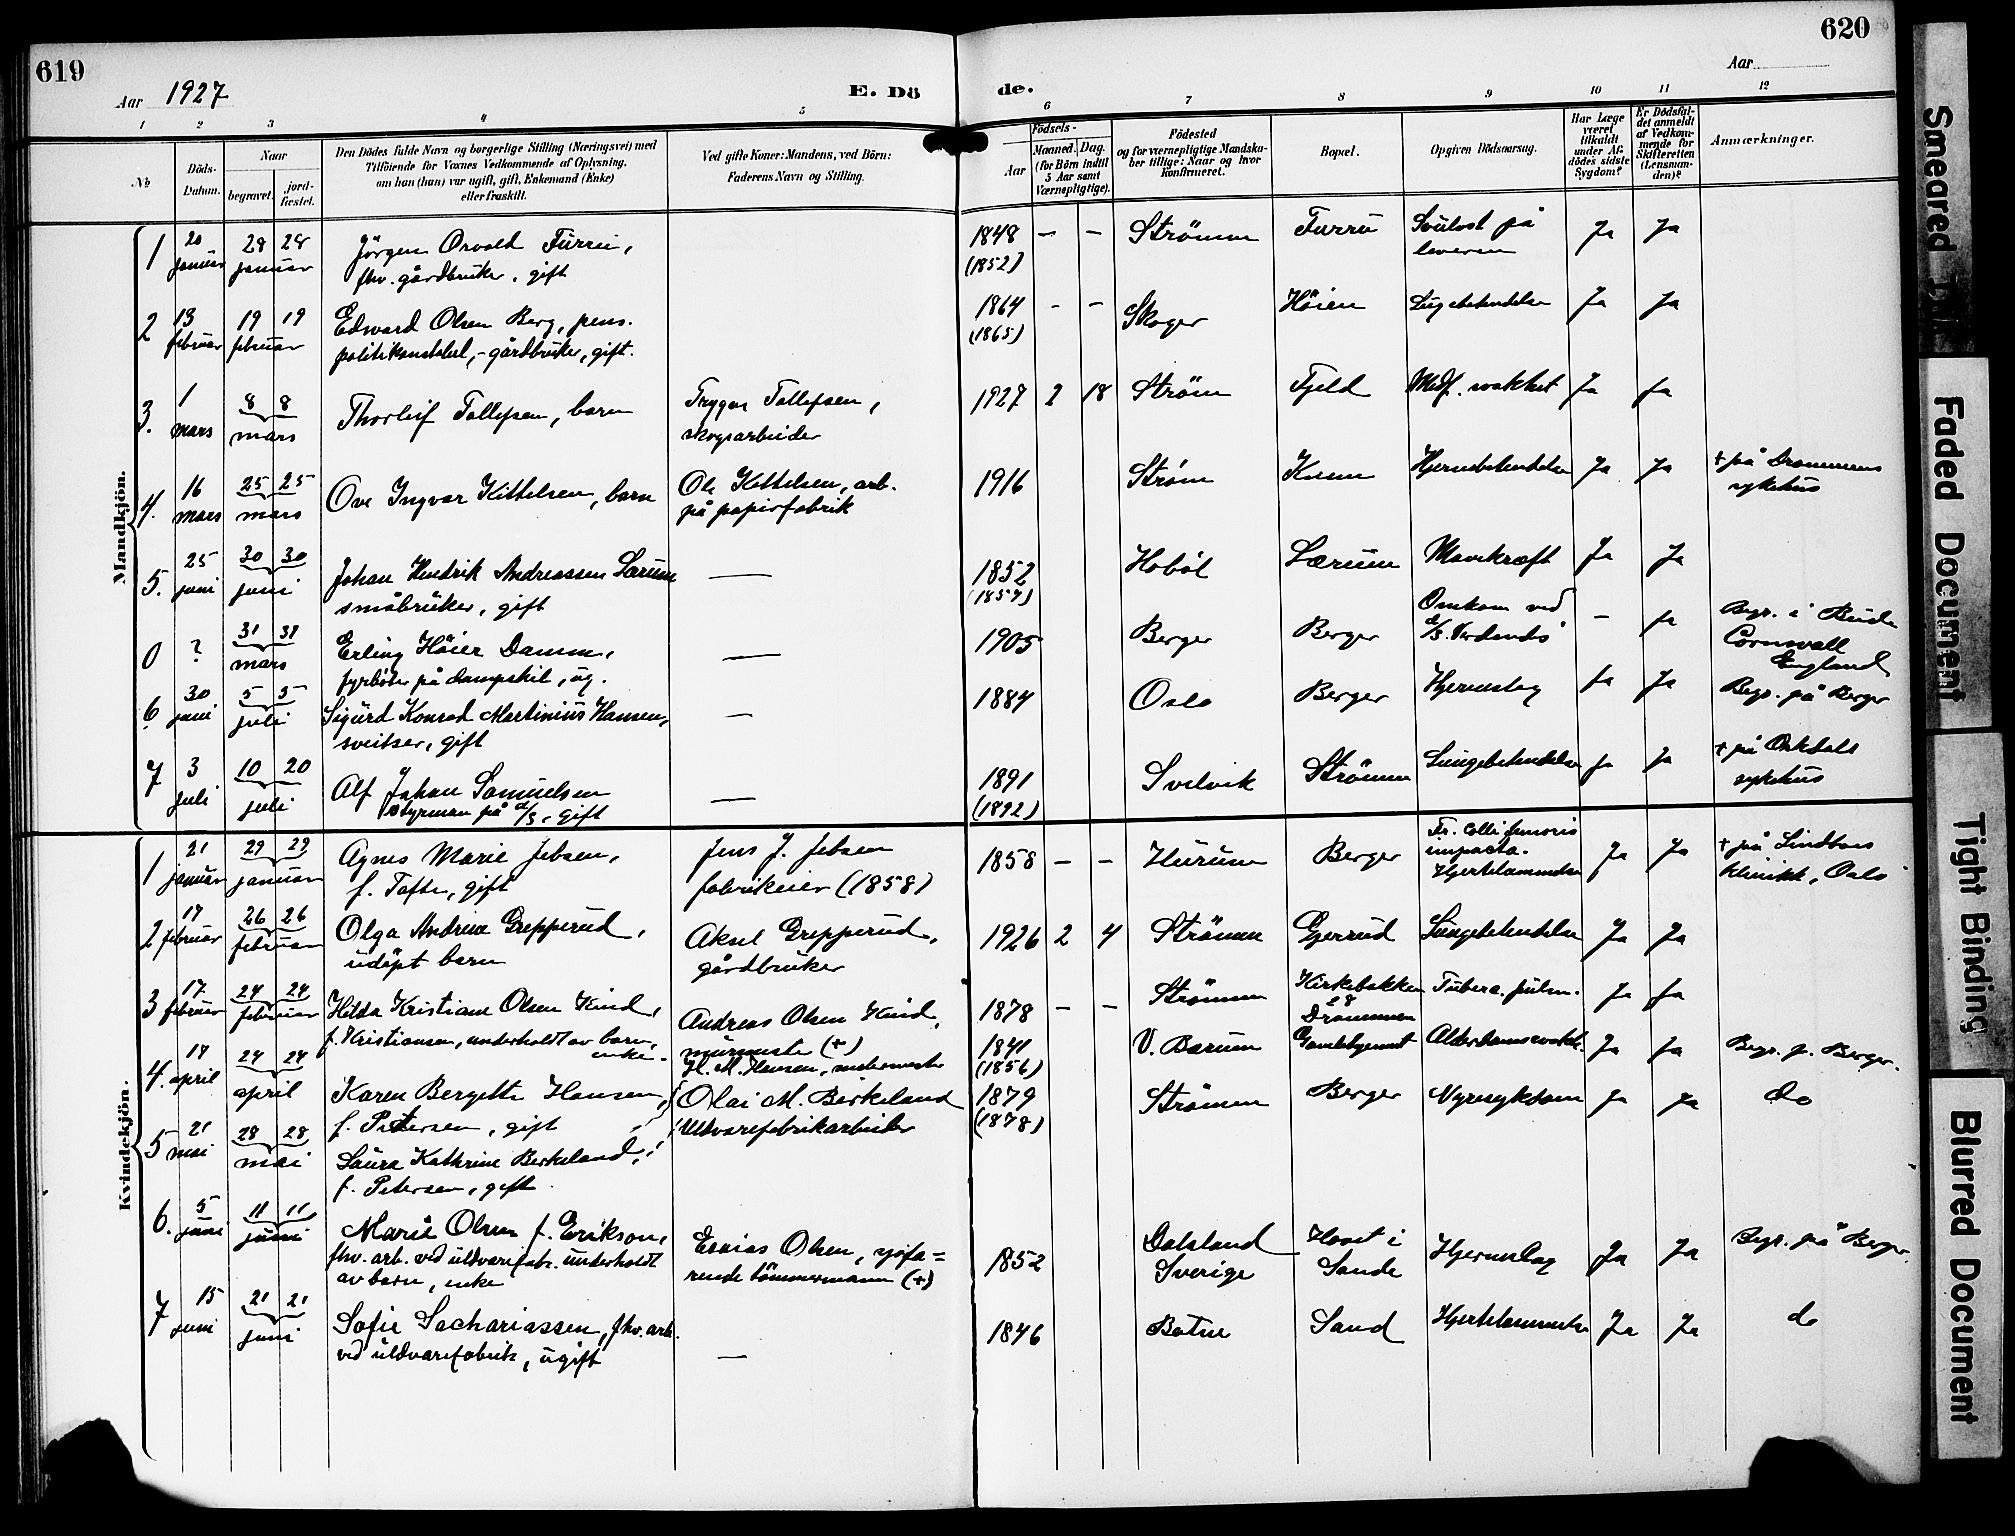 619
Aar 1927
E. Dö
1 2 3 4 5
No
Döds-
Datum.
Naar
begravet.
jord-
fæstet.
Den Dödes fulde Navn og borgerlige Stilling (Næringsvei) med
Tilföiende for Voxnes Vedkommende af Oplysning,
om han (hun) var ugift, gift, Enkemand (Enke)
eller fraskilt.
Ved gifte Koner: Mandens, ved Börn:
Faderens Navn og Stilling.
620
Aar
de.
6 7 8 9 10 11 12
Födsels-
Aar
Maaned. Dag.
(for Börn indtil
5 Aar samt
Værnepligtige).
Födested
og for værnepligtige Mandska-
ber tillige: Naar og hvor
konfirmeret.
Bopæl.
Opgiven Dödsaarsag.
Har Læge
været
tilkaldt
under Af-
dödes sidste
Sygdom?
Er Dödsfal-
det anmeldt
af Vedkom-
mende for
Skifteretten
(Lensman-
den)?
Anmærkninger.
Mandkjön.
1 20 januar 28 28 januar
Jörgen Osvald Furru,
fhv. gårdbruker, gift
1848 — — Strömm Furru
(1852)
Svulst på
leveren
Ja Ja
2 13 februar 19 19 februar
Edward Olsen Berg, pens.
politikonstabel, - gårdbruker, gift.
1864 - - Skoger Höien Lugebetendelse Ja Ja
(1865)
3. 1 mars 8 8 mars
Thorleif Tollefsen, barn
Trygve Tollefsen,
skogsarbeider
1927 2 18 Ström Fjeld Medf. svakhet Ja Ja
4. 16 mars 25 25 mars
Ove Ingvar Kittelsen, barn
Ole Kittelsen, arb.
på papirfabrik
1916 Ström Knem Hjernebetendelse Ja Ja
+ på Drammens
sykehus
5. 25 juni 30 30 juni
Johan Hendrik Andreassen Lærum
småbruker, gift
—
1852 Hobøl Lærum Mavekræft Ja Ja
(1857)
0 ? 31 31 mars
Erling Höier Damm,
fyrböter på dampskib, ug.
—
1905 Berger Berger
Omkom ved
d/s. Verdandi
- Ja
Begr. i Bude
Cornwall
England
6. 30 juni 5 5 juli
Sigurd Konrad Martinius Hansen,
sveitser, gift
—
1884 Oslo Berger Hjerneslag Ja Ja Begr. på Berger
7 3 juli 10 20 juli
Alf Johan Samuelsen
styrman på d/s, gift
—
1891 Svelvik Strömm Lungebetendelse Ja Ja
(1892)
+ på Orkdals
sykehus
Kvindekjön.
1 21 januar 29 29 januar
Agnes Marie Jebsen,
f. Tofte, gift
Jens J. Jebsen
fabrikeier (1858)
1858 — — Hurum Berger
Fr. colli femoris
impacta.
Hjertelammelse
Ja Ja
+ på Lindboes
klinikk, Oslo
2 17 februar 26 26 februar
Olga Andrine Grepperud,
udöpt barn
Aksel Grepperud,
gårdbruker
1926 2 4 Strömm Gjerrud Lungebetendelse Ja Ja
3 17. februar 24 24 februar
Hilda Kristiane Olsen Kind,
f. Kristiansen, underholdt av barn,
enke.
Andreas Olsen Kind,
murmester (+)
1878 - - Strömm
Kirkebakken
28
Drammen
Tuberc. pulm. Ja Ja
4. 14 april 24 24 april
Karen Bergette Hansen,
f. Petersen, gift
H. M. Hansen,
1841 V. Bærum Gamlehjemmet Ja Ja Begr. p. Berger.
(1856)
5 21 mai 28 28 mai
Laura Kathrine Berkeland,
f. Petersen, gift
Olai M. Birkeland
Uldvarefabrikarbeider
1879 Strömm Berger Nyresykdom Ja Ja do
(1878)
6. 5 juni 11 11 juni
Marie Olsen f. Erikson,
fhv. arb. ved uldvarefabr. underholdt
av barn, enke
Esaias Olsen, sjöfa=
rende tömmermann (+)
1852
Dalsland
Sverige
Hoset i
Sande
Hjerneslag Ja Ja Begr. på Berger
7 15 juni 21 21 juni
Sofie Sachariassen, fhv. arb.
ved uldvarefabrik, ugift
—
1846 Botne Sand Hjertelammelse Ja Ja do
Smeared Ink
Faded Document
Tight Binding
Blurred Document